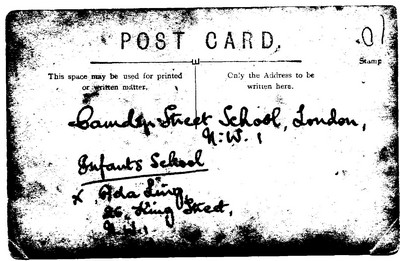 POST CARD.
Stamp
This space may be used for printed
or written matter.
Only the Address to be
written here.
Camden Street School, London,
N.W. 1
Infants School
x Ada Ling
26, King Street,
N.W.1